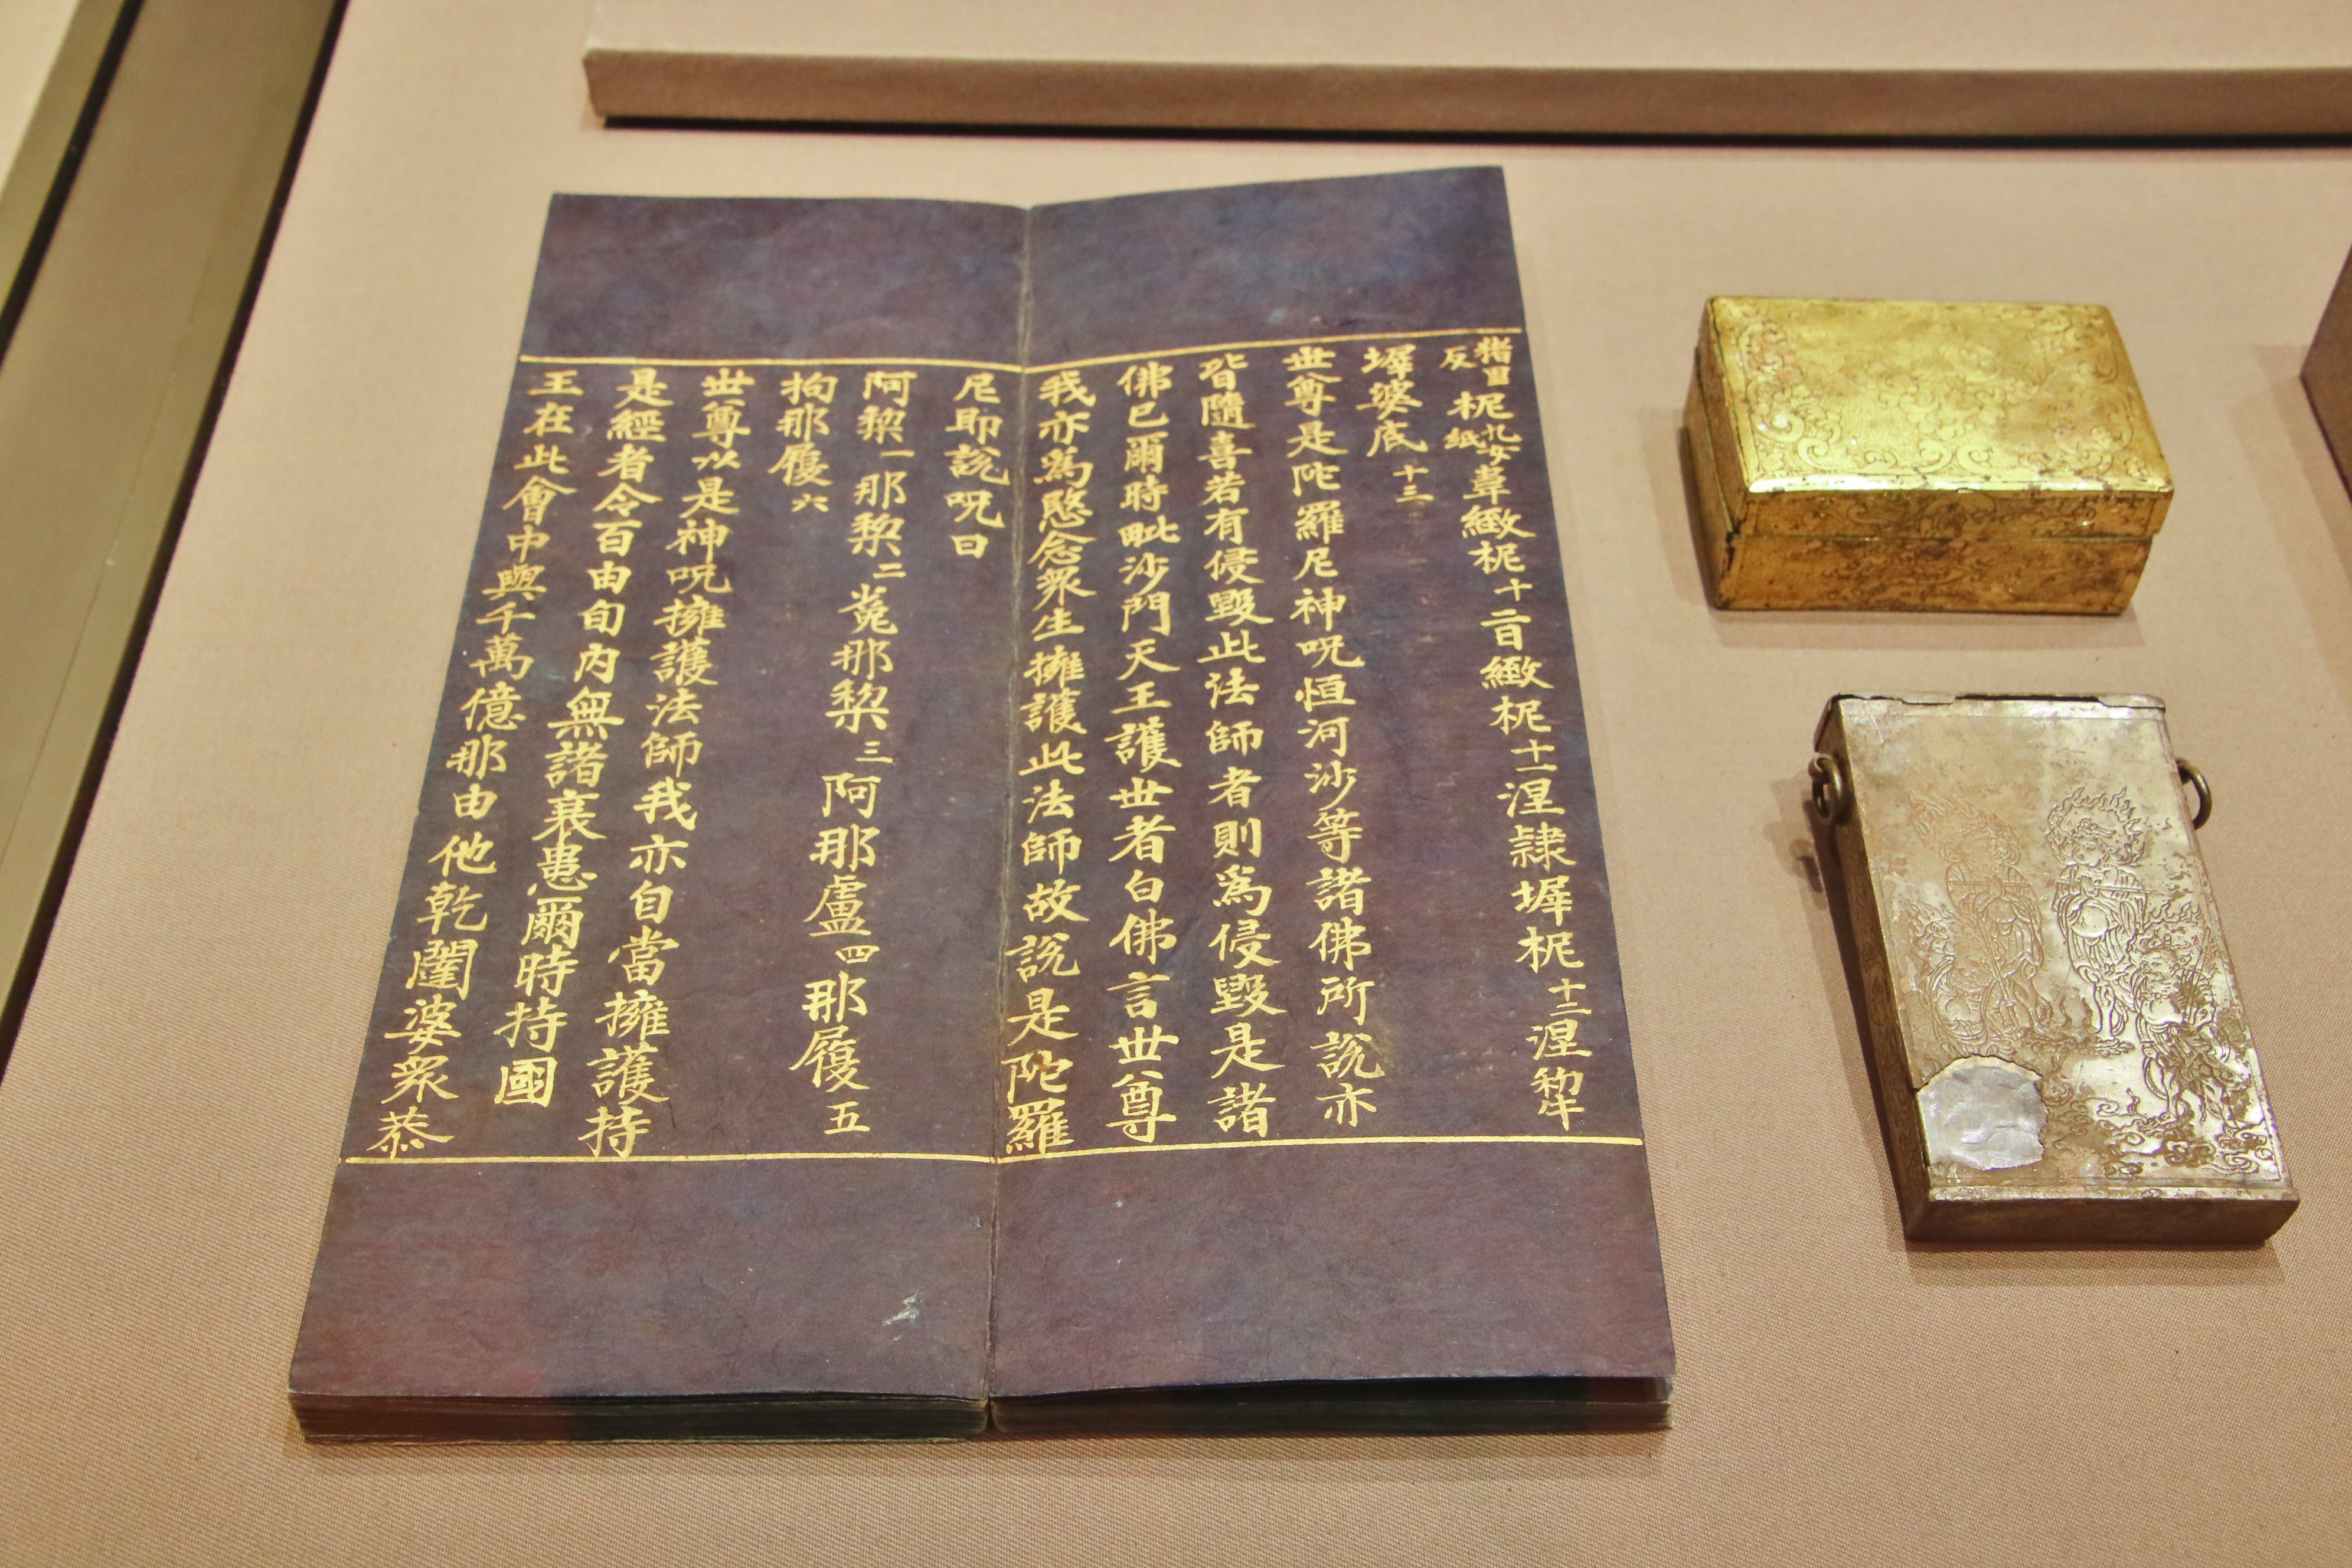 猪旨反柅九女紙韋緻柅十旨緻柅十一涅隸墀柅十二涅犁
墀婆底十三
世尊是陀羅尼神呪恒河沙等諸佛所說亦
皆隨喜若有侵毀此法師者則為侵毀是諸
佛已爾時毗沙門天王護世者白佛言世尊
我亦為愍念眾生擁護此法師故說是陀羅
尼即說呪曰
阿黎一那黎二㝹那黎三阿那盧四那履五
拘那履六
世尊以是神呪擁護法師我亦自當擁護持
是經者令百由旬內無諸衰患爾時持國
王在此會中與千萬億那由他乾闥婆眾恭